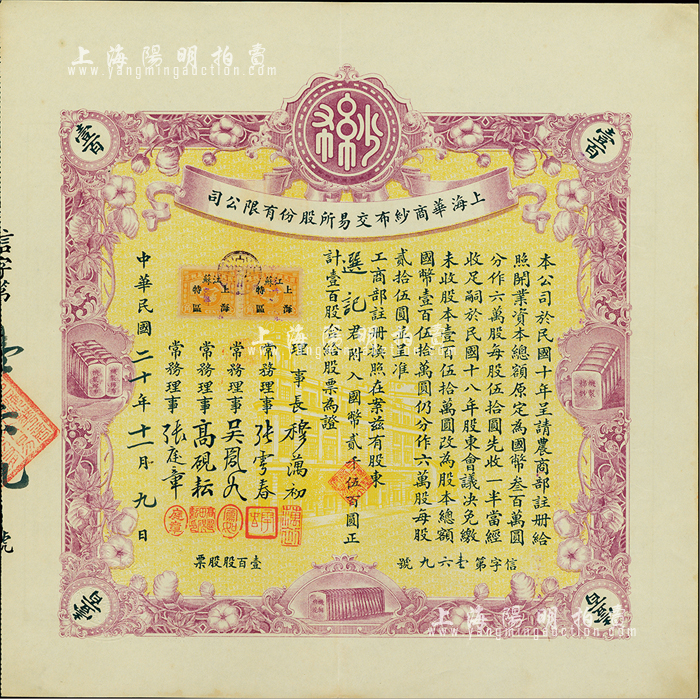 上海陽明拍賣
www.yangmingauction.com
壹百
壹百
上海華商紗布交易所股份有限公司
本公司於民國十年呈請農商部註冊給
照開業資本總額原定為國幣叁百萬圓
分作六萬股每股伍拾圓先收一半當經
收足嗣於民國十八年股東會議決免繳
未收股本壹百伍拾萬圓改為股本總額
國幣壹百伍拾萬圓仍分作六萬股每股
貳拾伍圓呈准
工商部註冊換照在案茲有股東
選記君附入國幣貳千伍百圓正
計壹百股合給股票為證
理事長 穆藕初
常務理事
常務理事
常務理事 高硯耘
常務理事 張庭章
中華民國二十年十二月九日
江蘇
上海
特區
江蘇
上海
特區
信字第壹六九號
壹百股股票
信字第
號
壹百
壹百
上海陽明拍賣
www.yangmingauction.com
上海陽明拍賣
www.yangmingauction.com